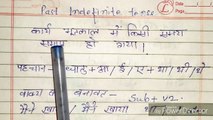 Past Indefinite tense
कार्य भूतकाल में किसी समय
समाप्त हो गया।
पहचान - या + आ / ई / ए + था / थी / थे
वाक्य की बनावट - Sub + V2
मैंने खाया मैंने खाया